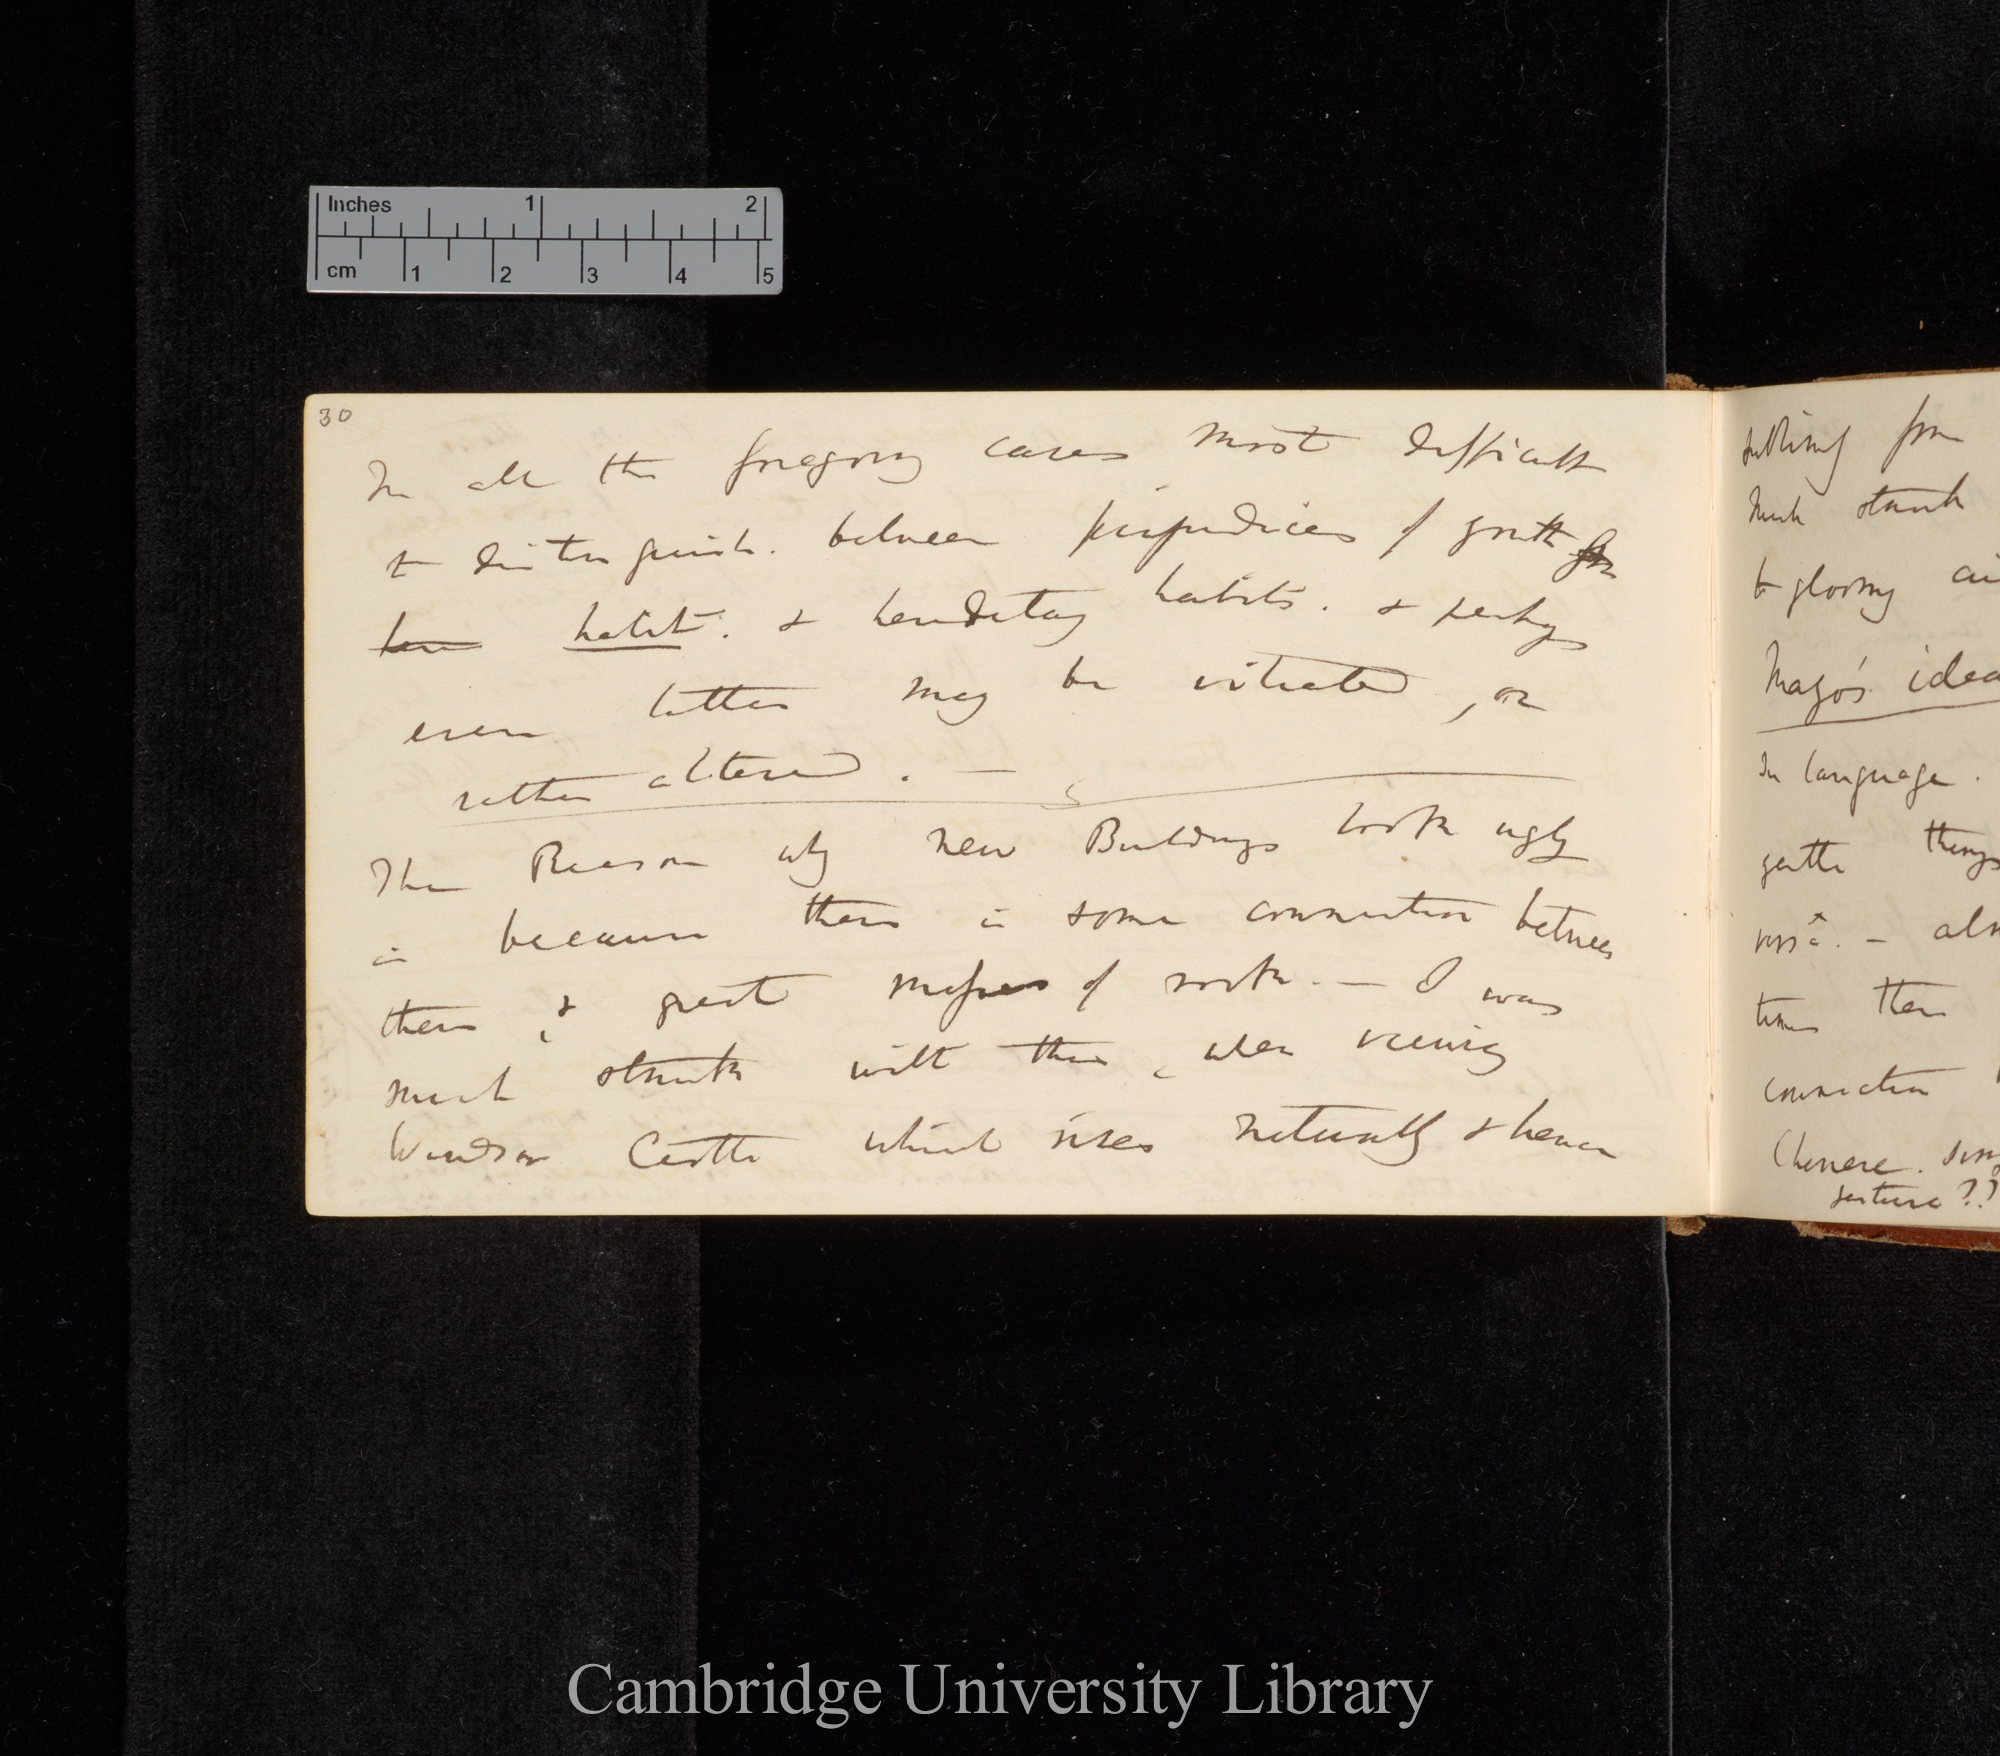 Inches 1 2
cm 1 2 3 4 5
30
In all the foregoing cases most difficult
to distinguish. between prejudices of youth
habit. & hereditary habits. & perhaps
even latter may be vitiated, or
rather altered. —
The Reason why new Buildings look ugly
is because there is some connection between
them, & great masses of rock. — I was
much struck with this, when viewing
Windsor Castle which rises naturally & hence
sublimity from
much struck
to gloomy
Mayo's idea
In language.
gentle things
versâ. —
times there
connection
Chinese. sing
gesture??
Cambridge University Library